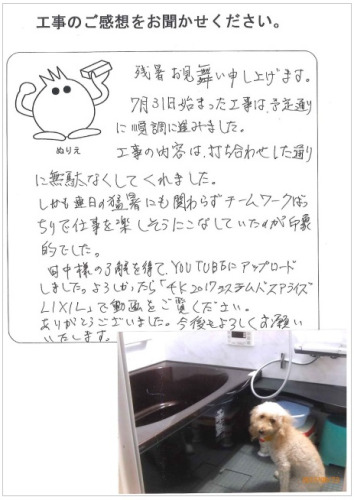 工事のご感想をお聞かせください。
残暑お見舞い申し上げます。
7月31日始まった工事は、予定通り
に順調に進みました。
ぬりえ
工事の内容は、打ち合わせした通り
に無駄なくしてくれました。
しかも毎日の猛暑にも関わらずチームワークばっ
ちりで仕事を楽しそうにこなしていたのが印象
的でした。
田中様の了解を得て、YOUTUBEにアップロード
しました。よろしかったら「4K2017システムバスアライズ
LIXIL」で動画をご覧ください。
ありがとうございました。今後もよろしくお願い
いたします。